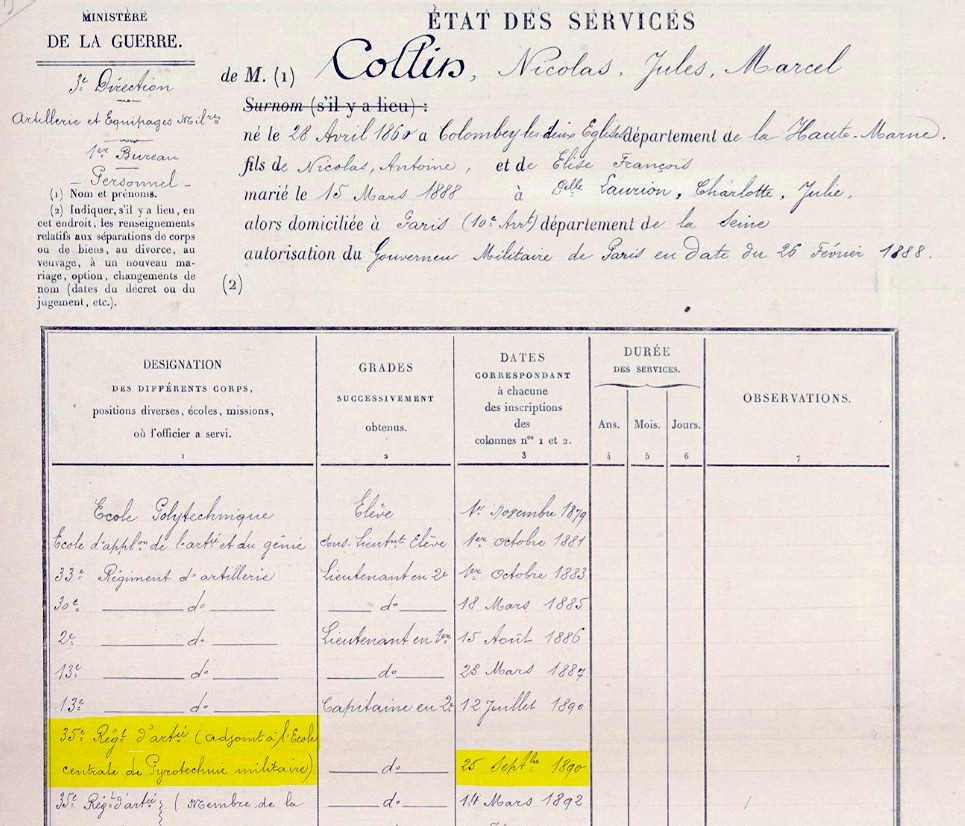 MINISTÈRE
DE LA GUERRE.
3e Direction
Artillerie et Equipages Milres
1er Bureau
- Personnel -
(1) Nom et prénoms.
(2) Indiquer, s'il y a lieu, en
cet endroit, les renseignements
relatifs aux séparations de corps
ou de biens, au divorce, au
veuvage, à un nouveau ma-
riage, option, changements de
nom (dates du décret ou du
jugement, etc.).
ÉTAT DES SERVICES
de M. (1) Collin, Nicolas, Jules, Marcel
Surnom (s'il y a lieu) :
né le 28 Avril 1860 a Colombey-les deux Eglises département de la Haute-Marne.
fils de Nicolas, Antoine, et de Elise François
marié le 15 Mars 1888 à Delle Laurion, Charlotte, Julie,
alors domiciliée à Paris (10e Arrt) département de la Seine
autorisation du Gouverneur Militaire de Paris en date du 25 Février 1888.
(2)
DESIGNATION
DES DIFFÉRENTS CORPS,
positions diverses, écoles, missions,
où l'officier a servi.
1
GRADES
SUCCESSIVEMENT
obtenus.
2
DATES
CORRESPONDANT
à chacune
des inscriptions
des
colonnes nos 1 et 2.
3
DURÉE
DES SERVICES.
Ans. Mois. Jours.
4 5 6
OBSERVATIONS.
7
Ecole Polytechnique Elève 1er Novembre 1879
Ecole d'applon de l'artie et du génie Sous-Lieutnt Elève 1er Octobre 1881
33e Régiment d'artillerie Lieutenant en 2e 1er Octobre 1883
30e do do 18 Mars 1885
2e do Lieutenant en 1er 15 Août 1886
13e do do 28 Mars 1887
13e do Capitaine en 2e 12 Juillet 1890
35e Régt d'artie (adjoint à l'Ecole
centrale de Pyrotechnie militaire) do 25 Septbre 1890
35e Régt d'artie (Membre de la do 14 Mars 1892